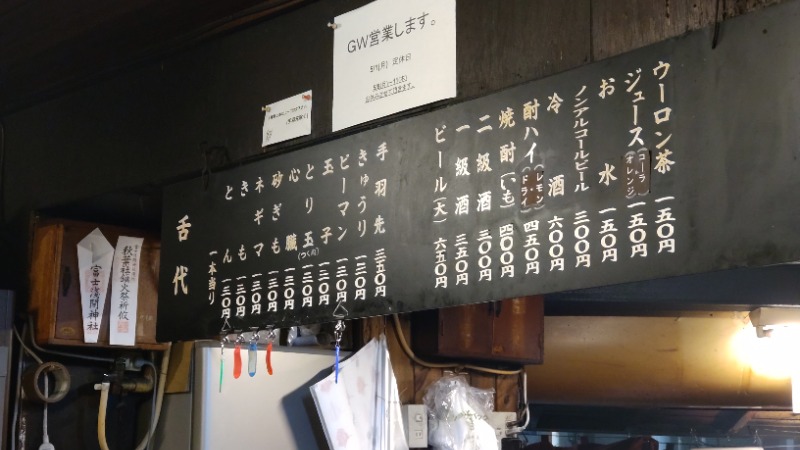 GW営業します。
ウーロン茶 一五〇円
ジュース（コーラ・オレンジ） 一五〇円
お水 一五〇円
ノンアルコールビール 三〇〇円
冷酒 六〇〇円
酎ハイ（レモン・ドライ） 四五〇円
焼酎（いも） 四〇〇円
二級酒 三〇〇円
一級酒 三五〇円
ビール（大） 六五〇円
手羽先 三五〇円
きゅうり 一三〇円
ピーマン 一三〇円
玉子 一三〇円
とり玉（つくね） 三三〇円
心臓 一三〇円
砂ぎも 一三〇円
ネギマ 一三〇円
きも 一三〇円
とん 一三〇円
一本当り
舌代
秋葉社鎮火祭祈攸
富士浅間神社